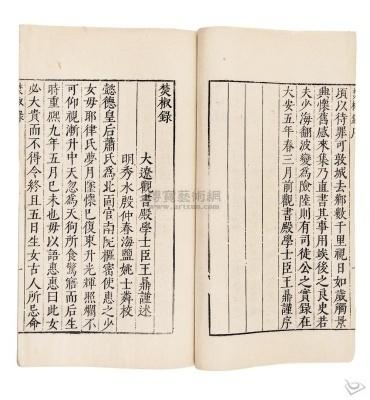 頃以待罪可敦城去鄉數千里視日如歲觸景
興懷舊感來集乃直書其事用俟後之良史若
夫少海翻波變為險陸則有司徒公之實錄在
大安五年春三月前觀書殿學士臣王鼎謹序
焚椒録
大遼觀書殿學士臣王鼎謹述
明秀水殷仲春海鹽姚士粦校
懿德皇后蕭氏為北面官南院樞密使惠之少
女母耶律氏夢月墜懷已復東升光輝照爛不
可仰視漸升中天忽為天狗所食驚寤而后生
時重熙九年五月己未也母以語惠惠曰此女
必大貴而不得令終且五日生女古人所忌命
焚椒録
博寶藝術網
www.artxun.com